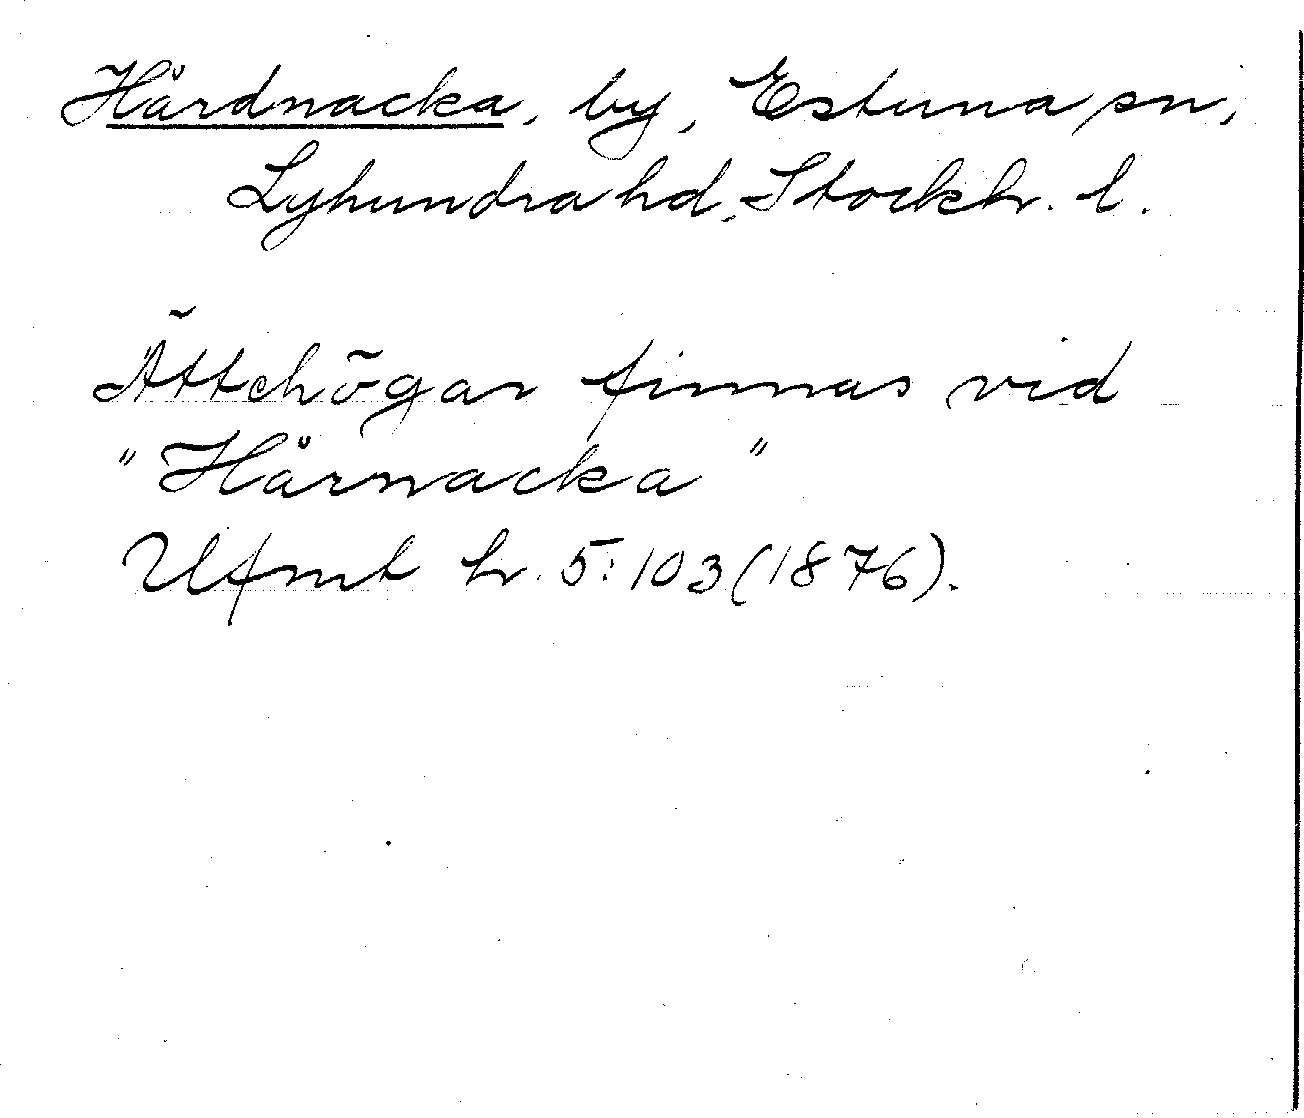 Hårdnacka, by, Estuna sn,
Lyhundra hd, Stockh. l.
Ättehögar finnas vid
"Hårnacka"
Ufmt h. 5:103 (1876).